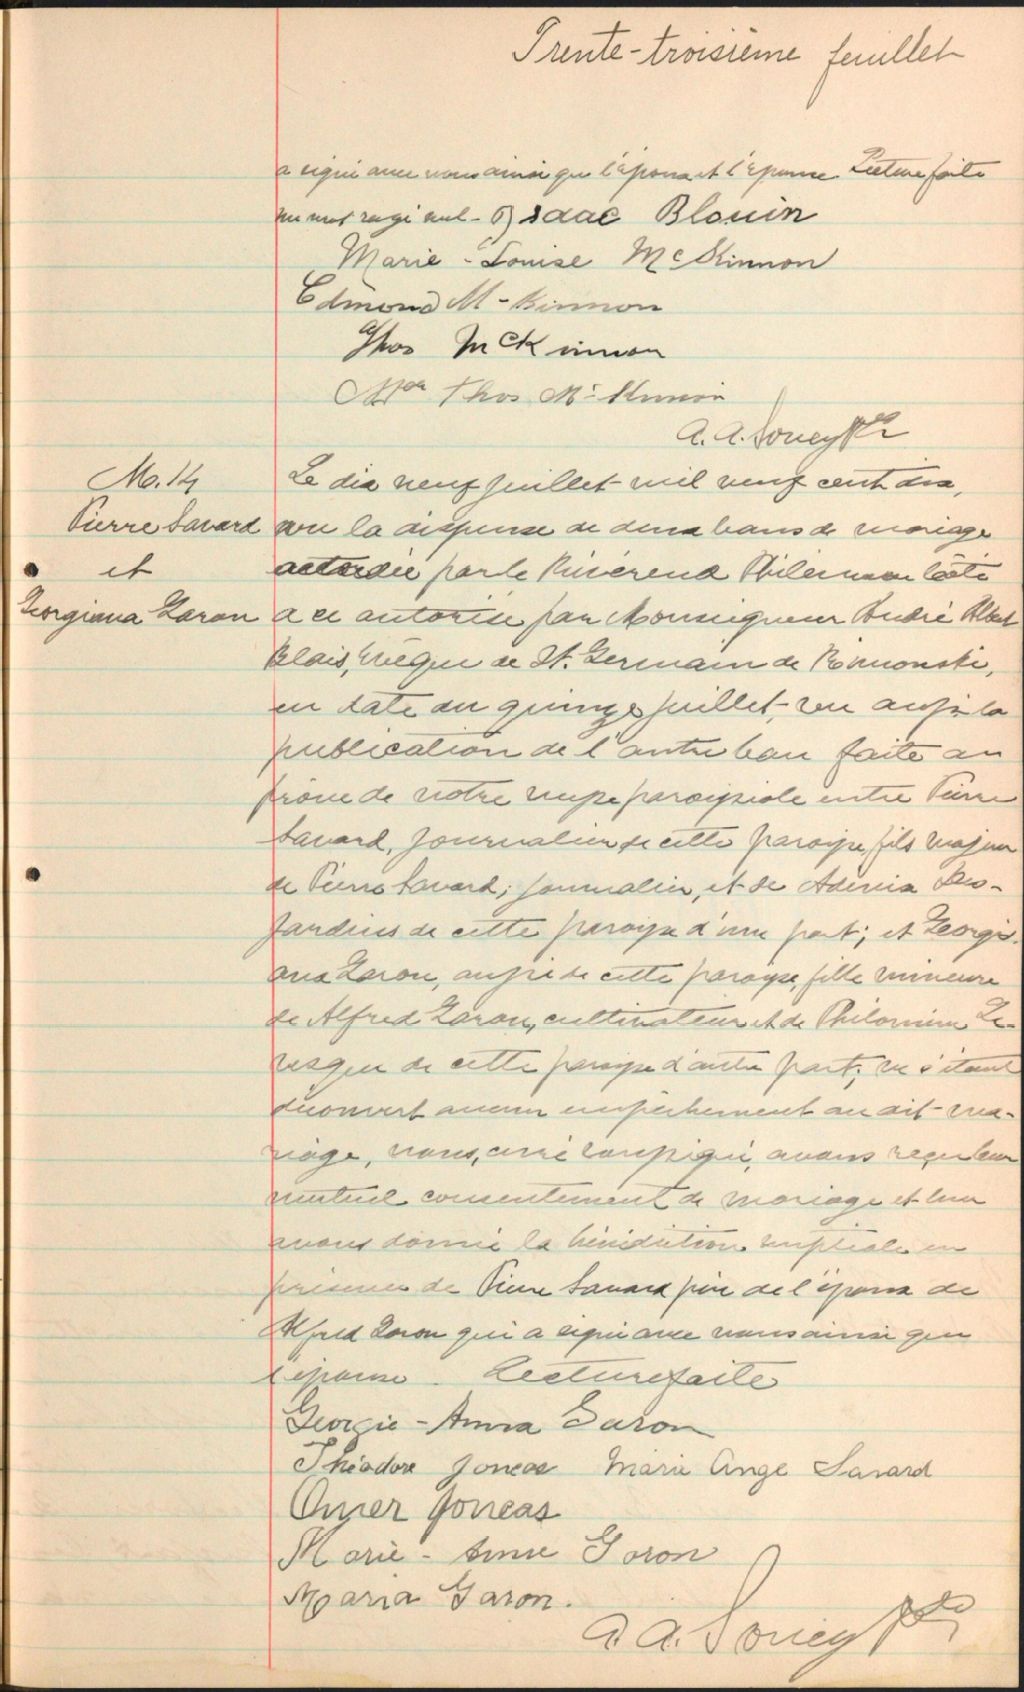 Trente-troisième feuillet
a signé avec nous ainsi que l'époux et l'épouse. Lecture faite
un mot rayé nul - Isaac Blouin
Marie - Louise McKinnon
Edmond Mc-Kinnon
Thos McKinnon
Mde Thos McKinnon
A. A. Soucy Ptre
M. 14
Pierre Savard
et
Georgiana Garon
Le dix neuf juillet mil neuf cent dix,
vu la dispense de deux bans de mariage
accordée par le Révérend Philémon Côté
a ce autorisé par Monseigneur André Albert
Blais, Evêque de St. Germain de Rimouski,
en date du quinze juillet, vu aussi la
publication de l'autre ban faite au
prône de notre messe paroissiale entre Pierre
Savard, journalier de cette paroisse, fils majeur
de Pierre Savard, journalier, et de Des-
jardins de cette paroisse d'une part; et Georgi-
ana Garon, aussi de cette paroisse, fille mineure
de Alfred Garon, cultivateur et de Philomène Le-
vesque de cette paroisse d'autre part; ne s'étant
découvert aucun empêchement au dit ma-
riage, nous, curé soussigné, avons reçu leur
mutuel consentement de mariage et leur
avons donné la bénédiction nuptiale en
présence de Pierre Savard père de l'époux de
Alfred Garon qui a signé avec nous ainsi que
l'épouse. Lecture faite
Georgie - Anna Garon
Théodore Joncas Marie Ange Savard
Omer Joncas
Marie - Anne Garon
Maria Garon.
A. A. Soucy Ptre